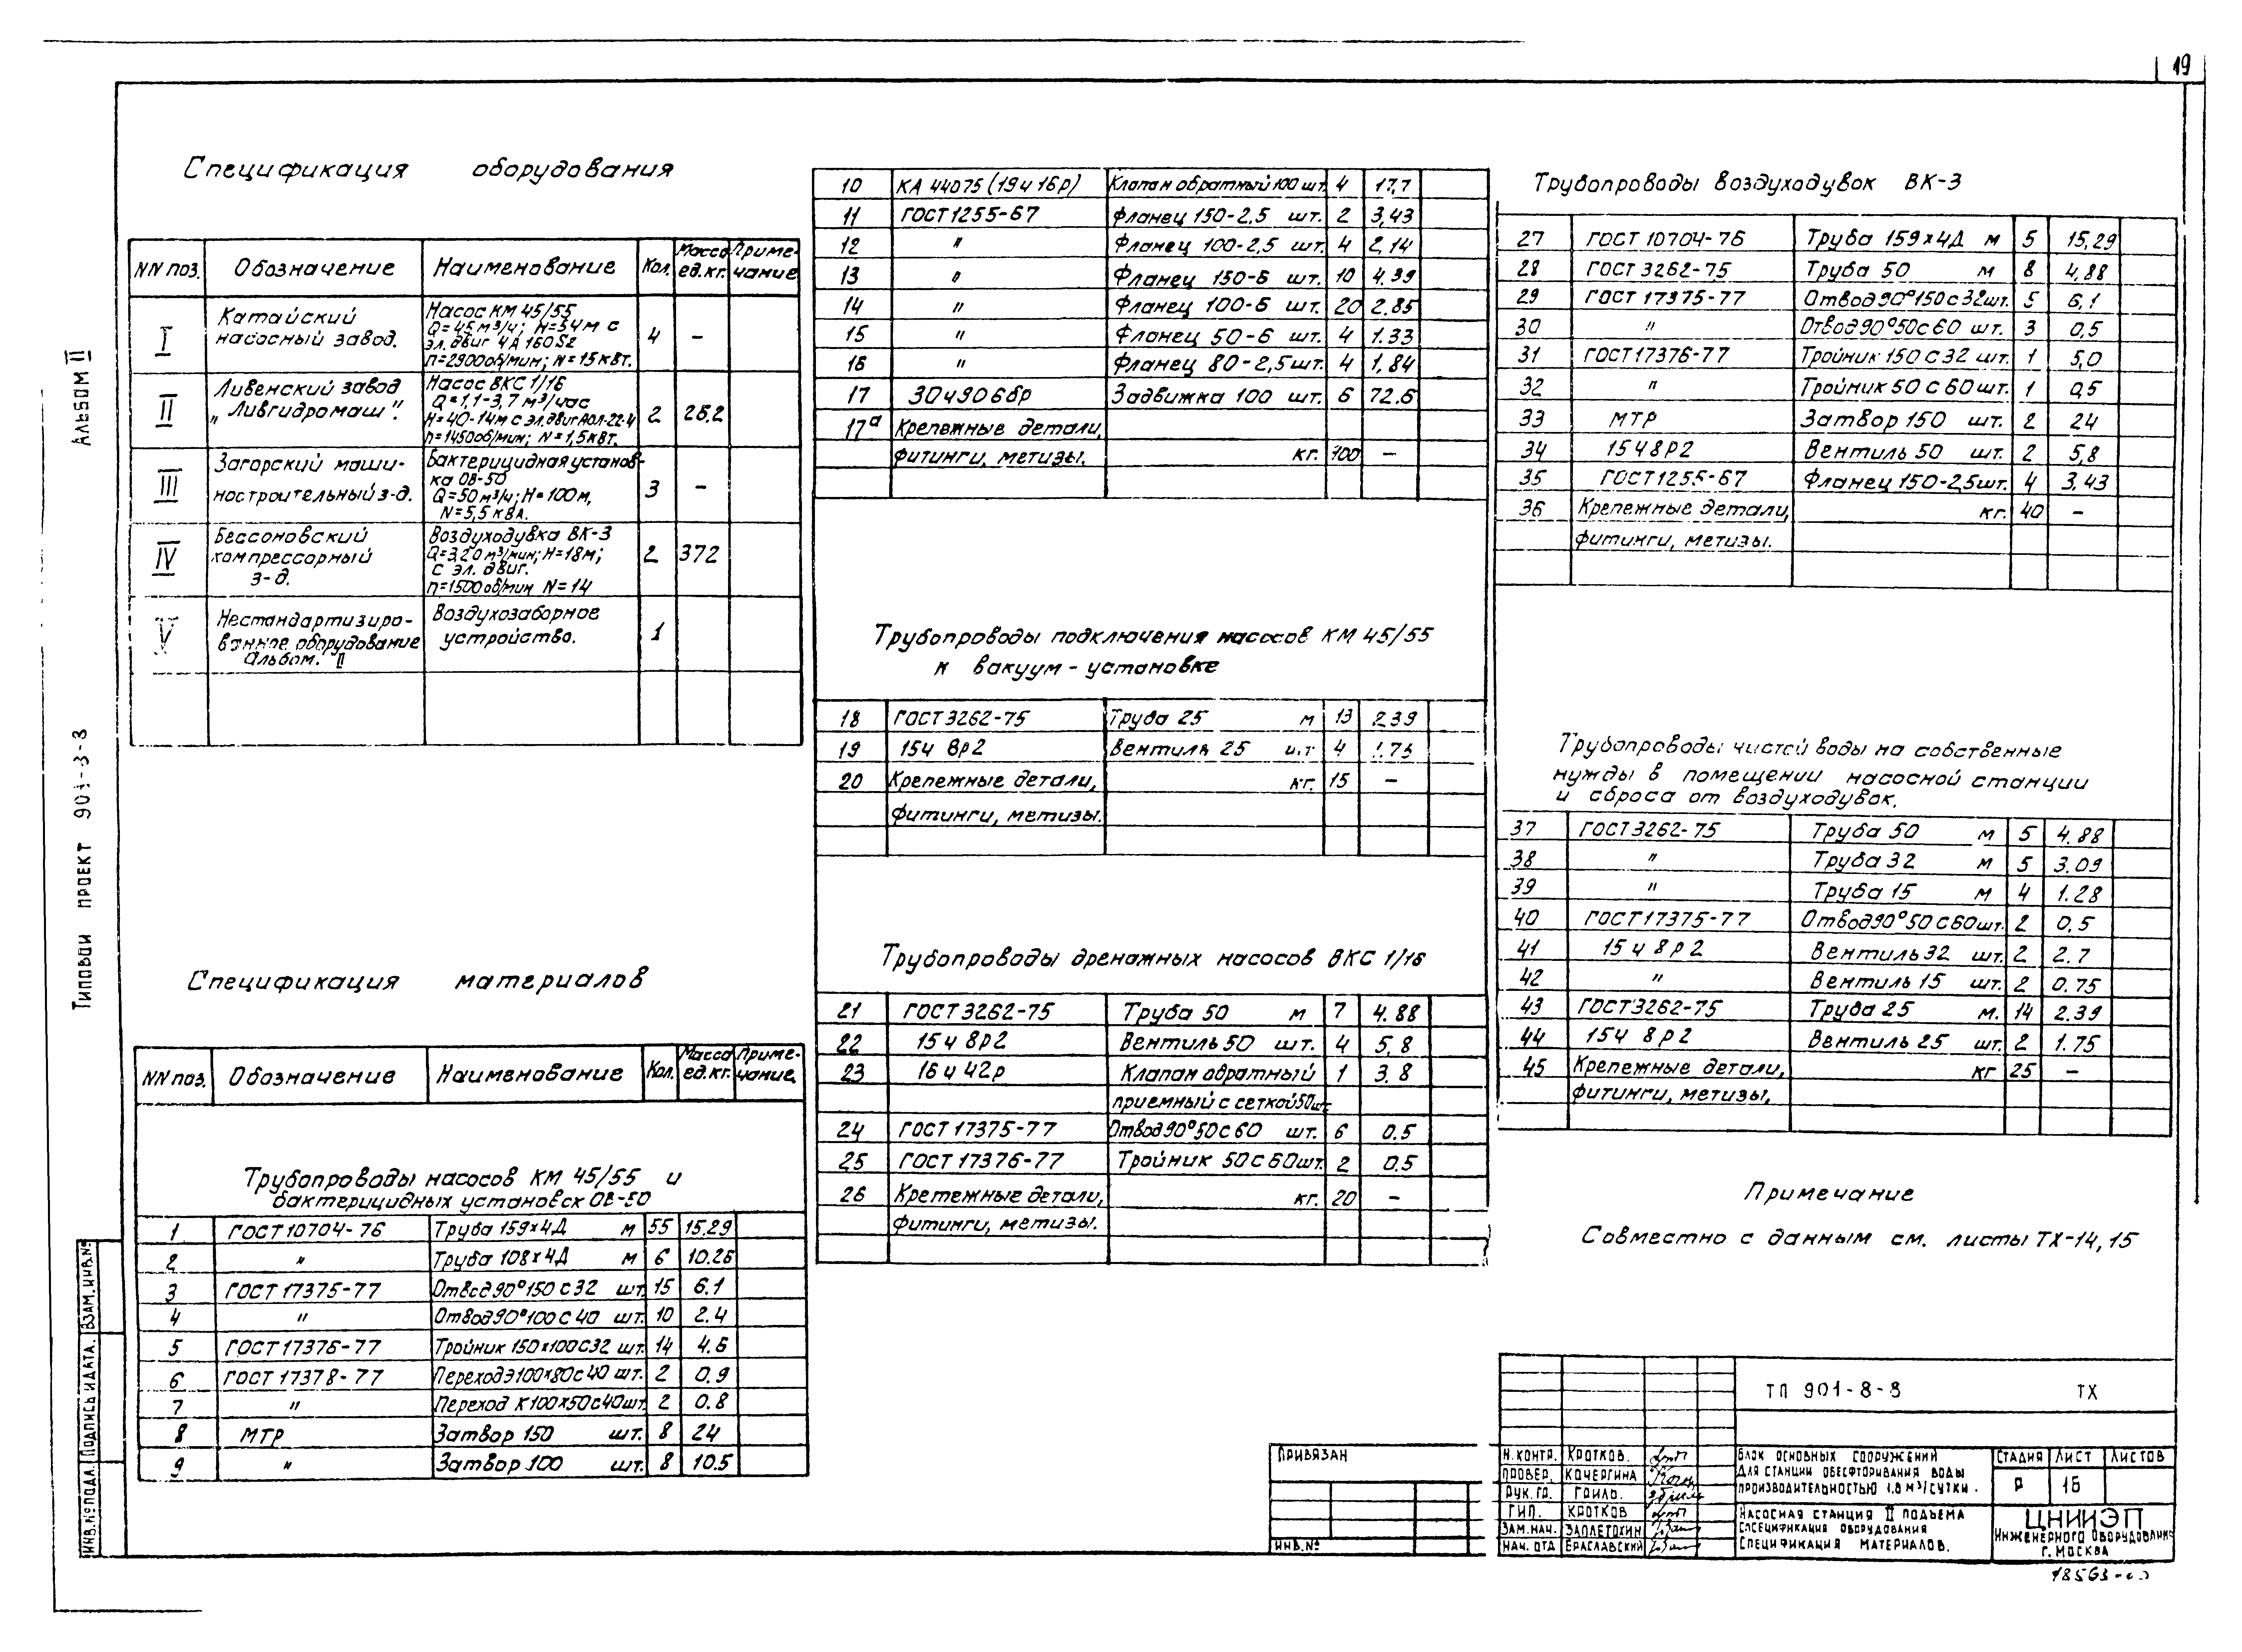 19
Альбом II
Типовой проект 901-3-3
Спецификация оборудования
NN поз. Обозначение Наименование Кол. Масса ед.кг. Примечание
I Катайский насосный завод. Насос КМ 45/55 4 –
Q=45м³/ч; Н=54м с
эл. двиг 4А 160S2
n=2900об/мин; N=15квт.
II Ливенский завод „Ливгидромаш". Насос ВКС 1/16 2 26.2
Q=1,1-3,7 м³/час
Н=40-14м с эл.двиг АОЛ-22-4
n=1450об/мин; N=1,5квт.
III Загорский машиностроительный з-д. Бактерицидная установка ОВ-50 3 –
Q=50м³/ч; Н=100м,
N=5,5 кВА.
IV Бессоновский компрессорный з-д. Воздуходувка ВК-3 2 372
Q=320 м³/мин; Н=18м;
с эл. двиг.
n=1500об/мин N=14
V Нестандартизированное оборудование Альбом. II Воздухозаборное устройство. 1
Спецификация материалов
NN поз. Обозначение Наименование Кол. Масса ед.кг. Примечание
Трубопроводы насосов КМ 45/55 и
бактерицидных установок ОВ-50
1 ГОСТ 10704-76 Труба 159х4Д м 55 15.29
2 " Труба 108х4Д м 6 10.26
3 ГОСТ 17375-77 Отвод 90° 150 с 32 шт. 15 6.1
4 " Отвод 90° 100 с 40 шт. 10 2.4
5 ГОСТ 17376-77 Тройник 150х100С32 шт. 14 4.6
6 ГОСТ 17378-77 Переход Э100х80с40 шт. 2 0.9
7 " Переход К100х50с40шт. 2 0.8
8 МТР Затвор 150 шт. 8 24
9 " Затвор 100 шт. 8 10.5
10 КА 44075 (19ч16р) Клапан обратный 100 шт. 4 17,7
11 ГОСТ 1255-67 Фланец 150-2,5 шт. 2 3,43
12 " Фланец 100-2,5 шт. 4 2,14
13 " Фланец 150-6 шт. 10 4.39
14 " Фланец 100-6 шт. 20 2.85
15 " Фланец 50-6 шт. 4 1.33
16 " Фланец 80-2,5 шт. 4 1,84
17 30ч906бр Задвижка 100 шт. 6 72.6
17а Крепежные детали,
фитинги, метизы. кг. 100 –
Трубопроводы подключения насосов КМ 45/55
к вакуум-установке
18 ГОСТ 3262-75 Труба 25 м 13 2.39
19 15ч 8р2 Вентиль 25 шт 4 1.75
20 Крепежные детали, кг. 15 –
фитинги, метизы.
Трубопроводы дренажных насосов ВКС 1/16
21 ГОСТ 3262-75 Труба 50 м 7 4.88
22 15ч 8р2 Вентиль 50 шт. 4 5,8
23 16ч 42р Клапан обратный 1 3.8
приемный с сеткой 50шт
24 ГОСТ 17375-77 Отвод 90° 50 с 60 шт. 6 0.5
25 ГОСТ 17376-77 Тройник 50 с 60 шт. 2 0.5
26 Крепежные детали, кг. 20 –
фитинги, метизы.
Трубопроводы воздуходувок ВК-3
27 ГОСТ 10704-76 Труба 159х4Д м 5 15,29
28 ГОСТ 3262-75 Труба 50 м 8 4,88
29 ГОСТ 17375-77 Отвод 90° 150 с 32 шт. 5 6,1
30 " Отвод 90° 50 с 60 шт. 3 0,5
31 ГОСТ 17376-77 Тройник 150 с 32 шт. 1 5,0
32 " Тройник 50 с 60 шт. 1 0,5
33 МТР Затвор 150 шт. 2 24
34 15ч8р2 Вентиль 50 шт. 2 5,8
35 ГОСТ 1255-67 Фланец 150-2,5шт. 4 3,43
36 Крепежные детали, кг. 40 –
фитинги, метизы.
Трубопроводы чистой воды на собственные
нужды в помещении насосной станции
и сброса от воздуходувок.
37 ГОСТ 3262-75 Труба 50 м 5 4.88
38 " Труба 32 м 5 3.09
39 " Труба 15 м 4 1.28
40 ГОСТ 17375-77 Отвод 90° 50 с 60 шт. 2 0.5
41 15ч 8р2 Вентиль 32 шт. 2 2.7
42 " Вентиль 15 шт. 2 0.75
43 ГОСТ 3262-75 Труба 25 м. 14 2.39
44 15ч 8р2 Вентиль 25 шт. 2 1.75
45 Крепежные детали, кг 25 –
фитинги, метизы,
Примечание
Совместно с данным см. листы ТХ-14, 15
ТП 901-8-8 ТХ
Привязан
Инв.№
Н.контр. Кротков.
Провер. Кочергина
Рук. гр. Гаило.
ГИП. Кротков
Зам.нач. Заплетохин
Нач. отд Ераславский
Блок основных сооружений
для станции обесфторивания воды
производительностью 1.8 м³/сутки.
Стадия Лист Листов
Р 16
Насосная станция II подъема
Спецификация оборудования
Спецификация материалов.
ЦНИИЭП
Инженерного оборудования
г. Москва
Инв.№ подл. Подпись и дата. Взам. инв.№